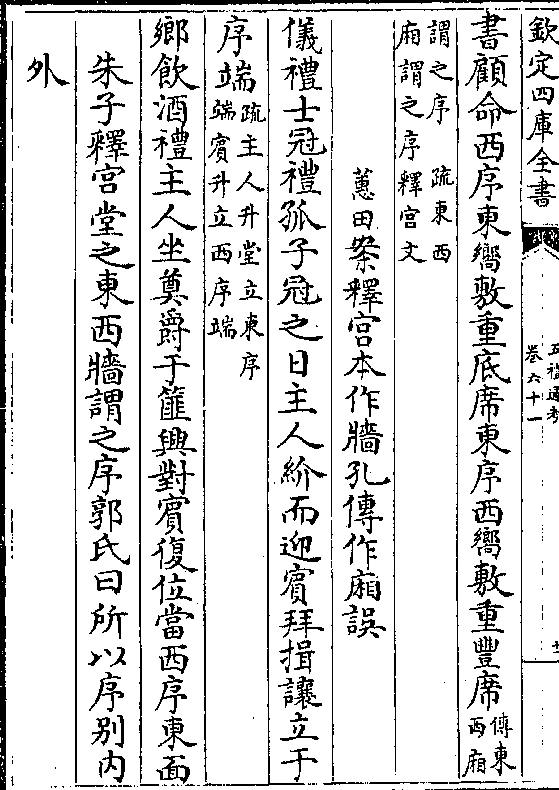 欽定四庫全書
五禮通考
卷六十一
書顧命西序東嚮敷重底席東序西嚮敷重豐席傳東西廂
謂之序 疏東西廂謂之序釋宫文
蕙田案釋宫本作牆孔傳作廂誤
儀禮士冠禮孤子冠之日主人紒而迎賓拜揖讓立于
序端疏主人升堂立東序端賓升立西序端
鄉飲酒禮主人坐奠爵于篚興對賓復位當西序東面
朱子釋宫堂之東西牆謂之序郭氏曰所以序别内
外